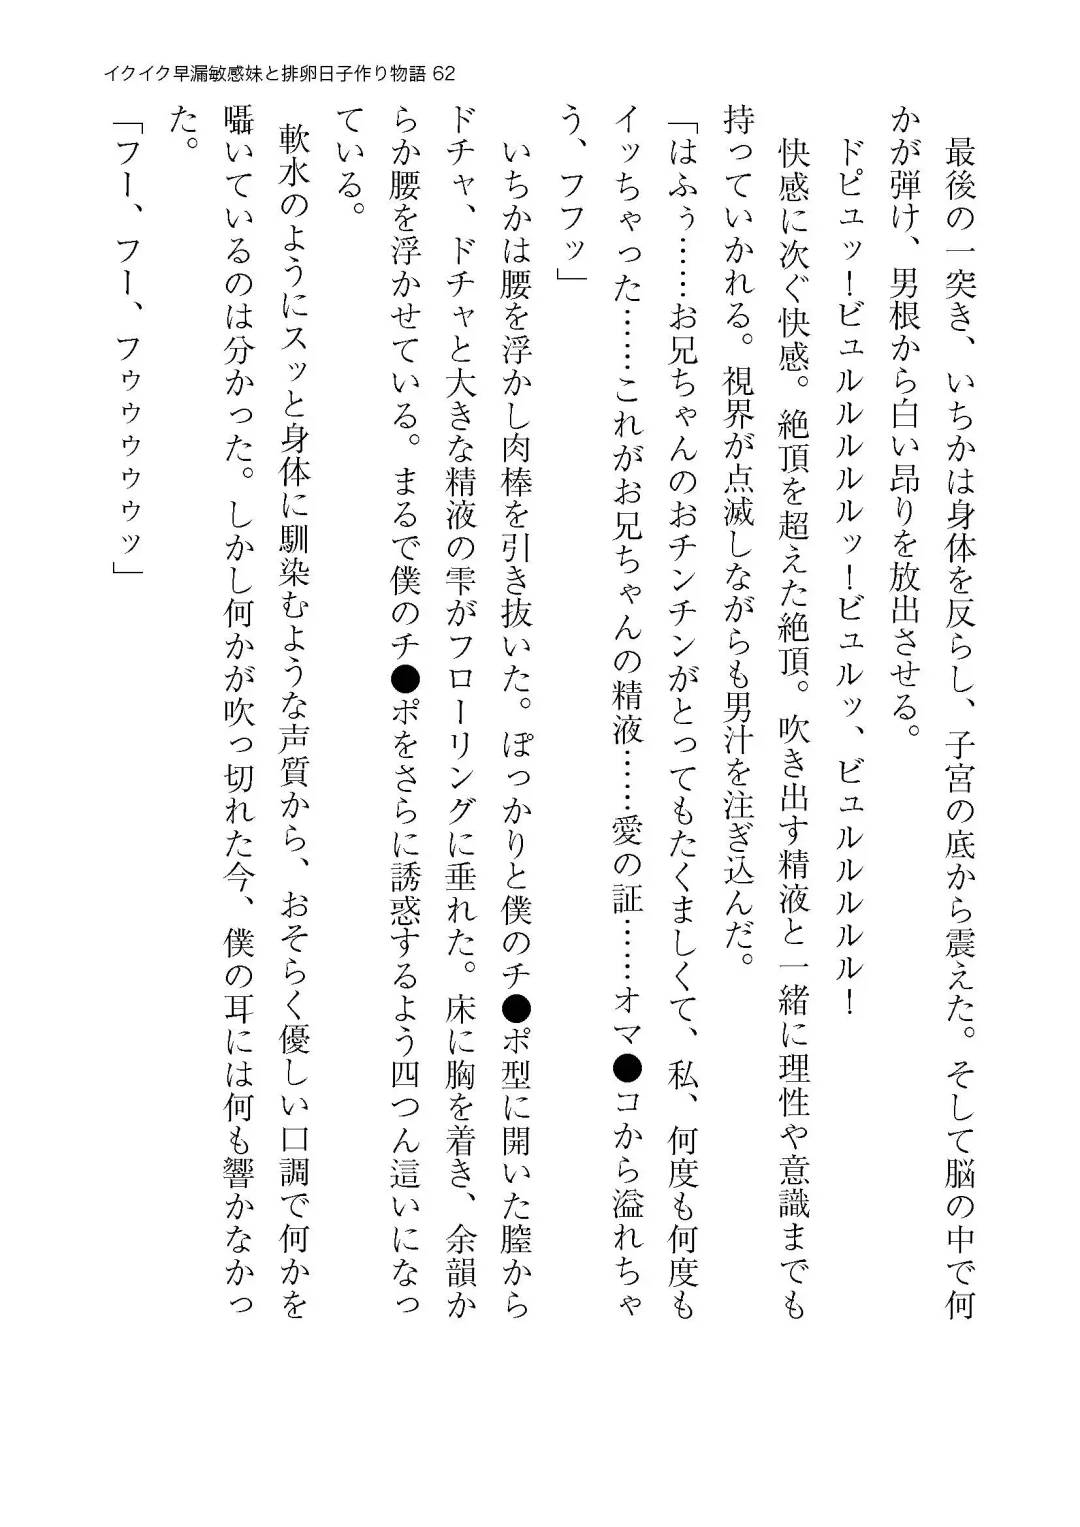 イクイク早漏敏感妹と排卵日子作り物語 62
最後の一突き、いちかは身体を反らし、子宮の底から震えた。そして脳の中で何
かが弾け、男根から白い昂りを放出させる。
ドピュッ！ビュルルルルルッ！ビュルッ、ビュルルルルル！
快感に次ぐ快感。絶頂を超えた絶頂。吹き出す精液と一緒に理性や意識までも
持っていかれる。視界が点滅しながらも男汁を注ぎ込んだ。
「はふぅ……お兄ちゃんのおチンチンがとってもたくましくて、私、何度も何度も
イッちゃった……これがお兄ちゃんの精液……愛の証……オマ●コから溢れちゃ
う、フフッ」
いちかは腰を浮かし肉棒を引き抜いた。ぽっかりと僕のチ●ポ型に開いた膣から
ドチャ、ドチャと大きな精液の雫がフローリングに垂れた。床に胸を着き、余韻か
らか腰を浮かせている。まるで僕のチ●ポをさらに誘惑するよう四つん這いになっ
ている。
軟水のようにスッと身体に馴染むような声質から、おそらく優しい口調で何かを
囁いているのは分かった。しかし何かが吹っ切れた今、僕の耳には何も響かなかっ
た。
「フー、フー、フゥゥゥゥゥッ」